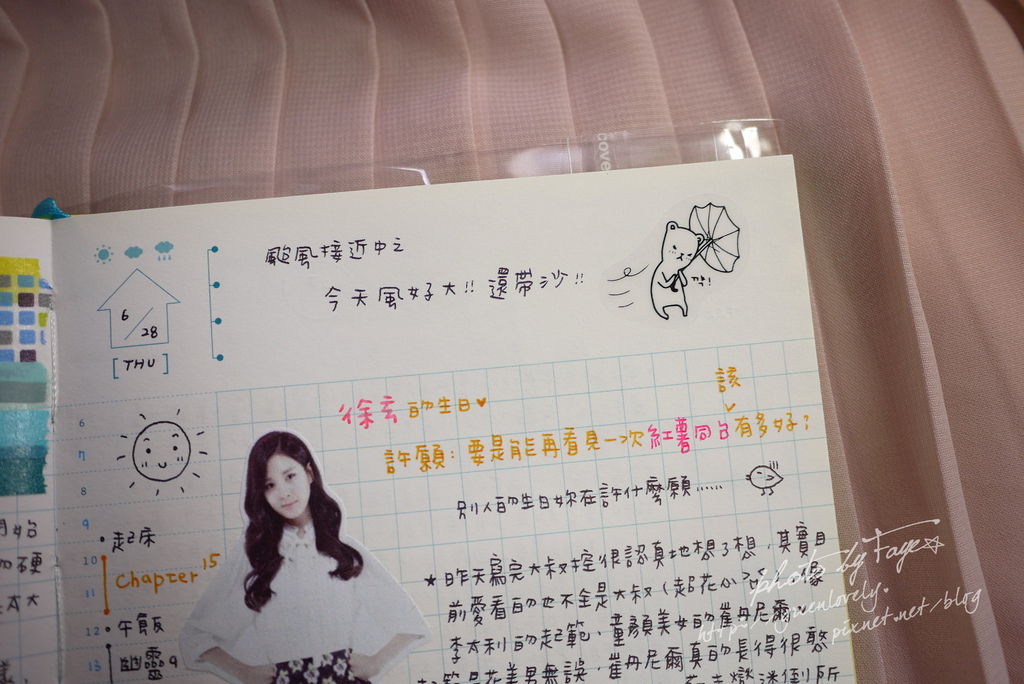 颱風接近中之
今天風好大!! 還帶沙!!
깍!
6/28
[THU]
徐玄的生日♥
該
許願:要是能再看見一次紅薯同台有多好?
別人的生日妳在許什麼願……
6
7
8
9
10
11
12
13
•起床
Chapter 15
•午飯
幽靈9
★昨天寫完大叔控很認真地想了想,其實目
前愛看的也不全是大叔(起花心?),像
李太利的起範、童顏美女的崔丹尼爾。
範是花美男無誤,崔丹尼爾真的長得很憨
迷倒所
cove
photo by Faye☆
pixnet.net/blog